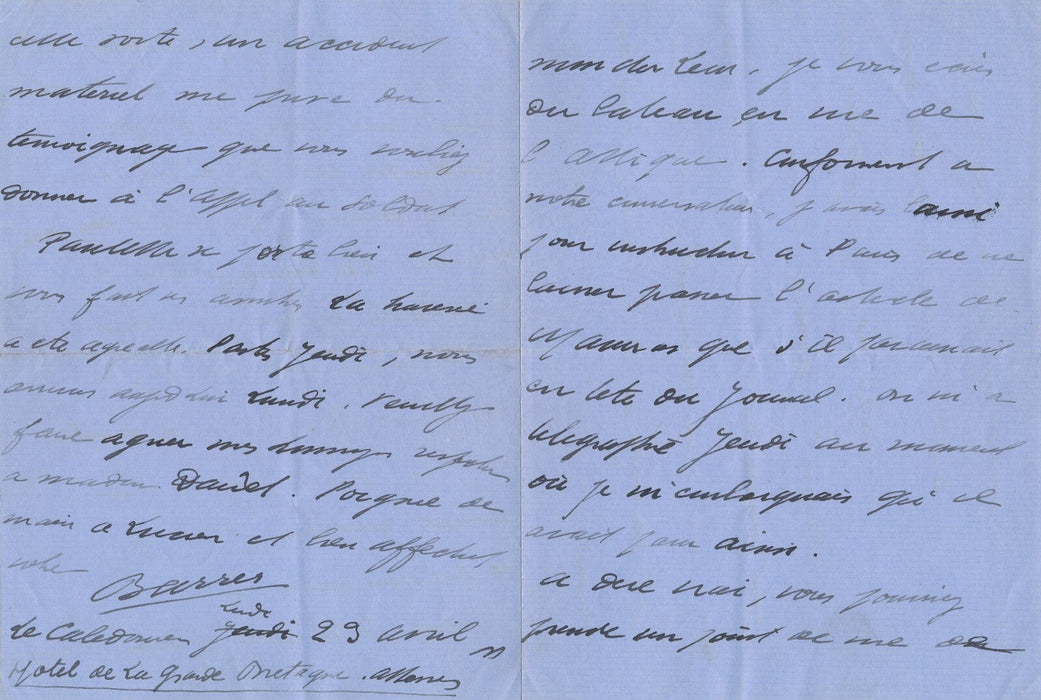 mon cher Leon, je vous écris
du bateau en vue de
l'Attique. Conformément a
notre conversation, j'avais
pour instruction à Paris de ne
laisser passer l'article de
Maurras que s'il passait
en tete du Journal. on m'a
telegraphié Jeudi au moment
où je m'embarquais qu'il
avait paru ainsi.
a dire vrai, vous pouviez
prendre un point de vue de
cette sorte, un accident
materiel me prive du
témoignage que vous vouliez
donner à l'Appel au Soldat
Paulette se porte bien et
vous fait ses amitiés La traversée
a ete agreable. Partis Jeudi, nous
arrivons aujourd'hui Lundi. Veuillez
faire agreer mes hommages respectueux
a madame Daudet. Poignee de
main a Lucien et bien affectueusement
votre
Barrès
Le Caledonien Jeudi Lundi 23 avril
Hotel de La Grande Bretagne. Athenes